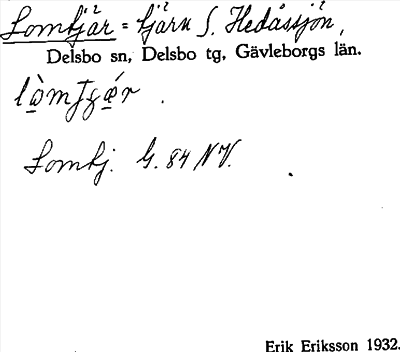 Lomtjär = tjärn S. Hedåssjön,
Delsbo sn, Delsbo tg, Gävleborgs län.
Lomtj. G. 84 NV.
Erik Eriksson 1932.